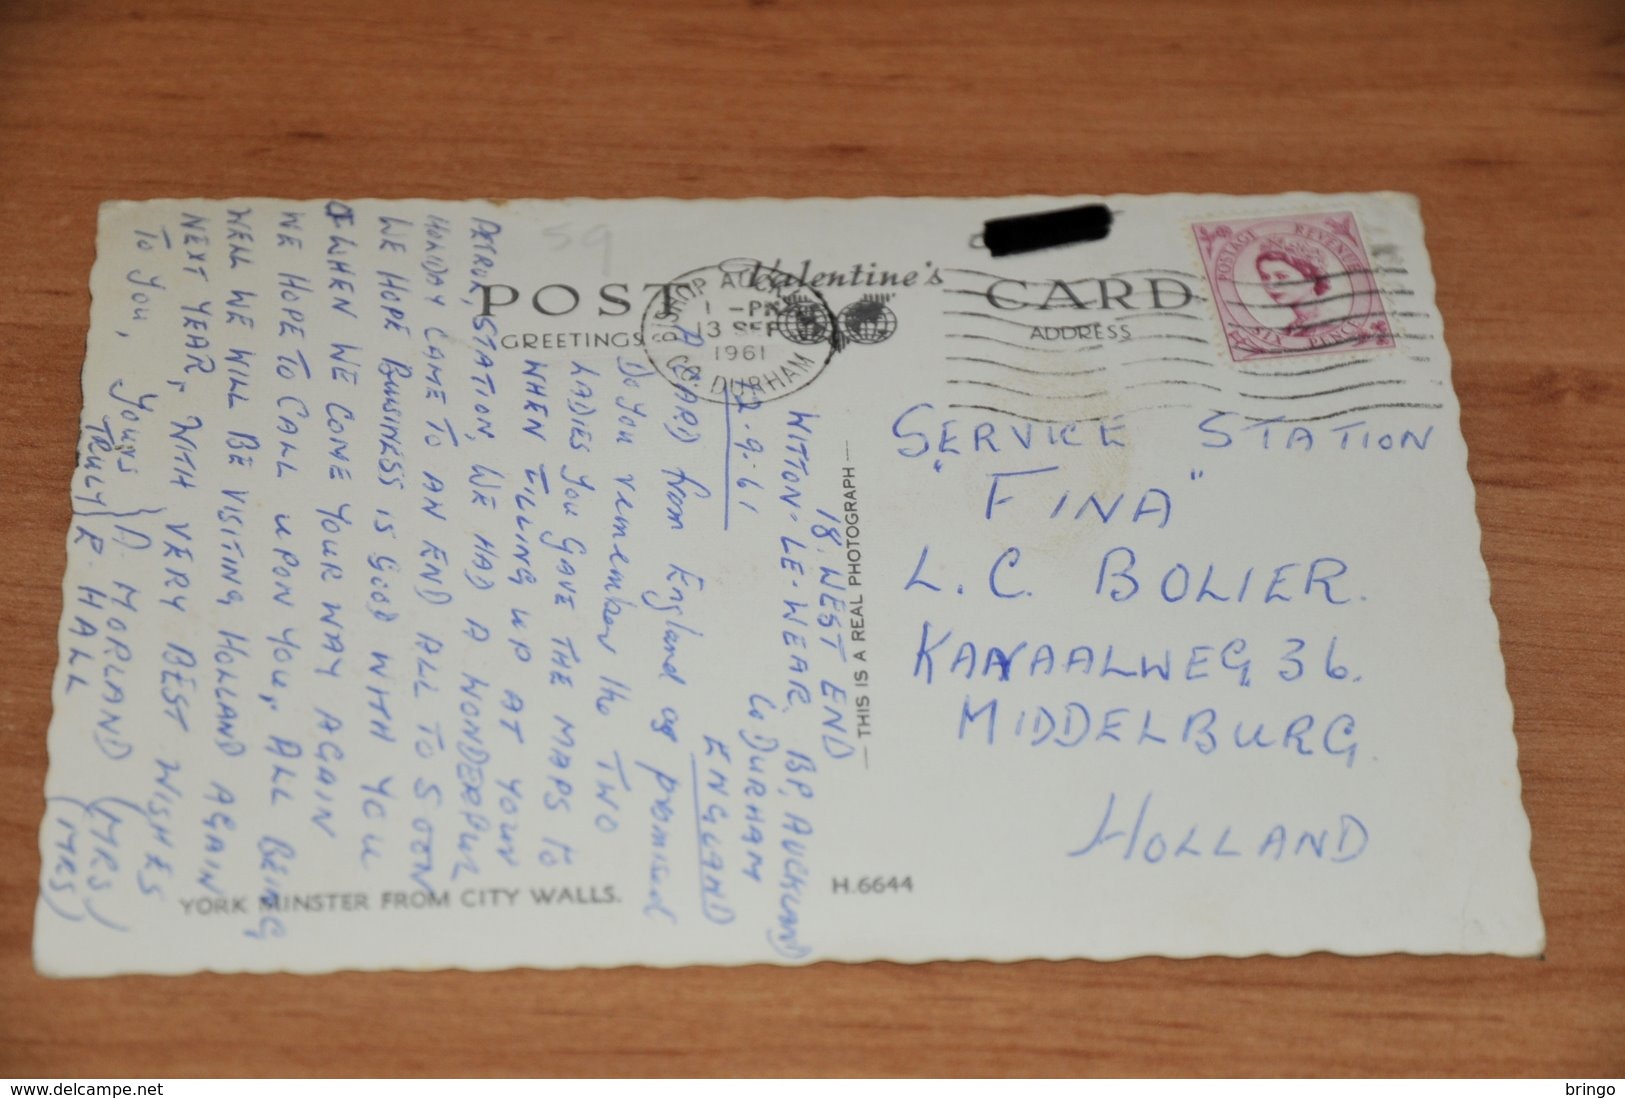 59
POST
Valentine's
CARD
GREETINGS
ADDRESS
BISHOP AUCKLAND
1 - PM
13 SEP
1961
CO. DURHAM
POSTAGE REVENUE
SIX PENCE
18. WEST END
WITTON-LE-WEAR, BP, AUCKLAND
Co DURHAM
ENGLAND
12.9.61
A CARD from England as promised
Do you remember the TWO
LADIES YOU GAVE THE MAPS to
WHEN FILLING UP AT YOUR
PETROL, STATION, WE HAD A WONDERFUL
HOLIDAY CAME TO AN END ALL TO SOON
WE HOPE BUSINESS is Good WITH YOU
WHEN WE COME YOUR WAY AGAIN
WE HOPE TO CALL UPON YOU, ALL BEING
WELL WE WILL BE VISITING HOLLAND AGAIN
NEXT YEAR, WITH VERY BEST WISHES
To You, Yours A. MORLAND (MRS)
TRULY R. HALL (MRS)
SERVICE STATION
"FINA"
L. C. BOLIER.
KANAALWEG 36.
MIDDELBURG.
HOLLAND
— THIS IS A REAL PHOTOGRAPH —
YORK MINSTER FROM CITY WALLS.
H.6644
www.delcampe.net
bringo